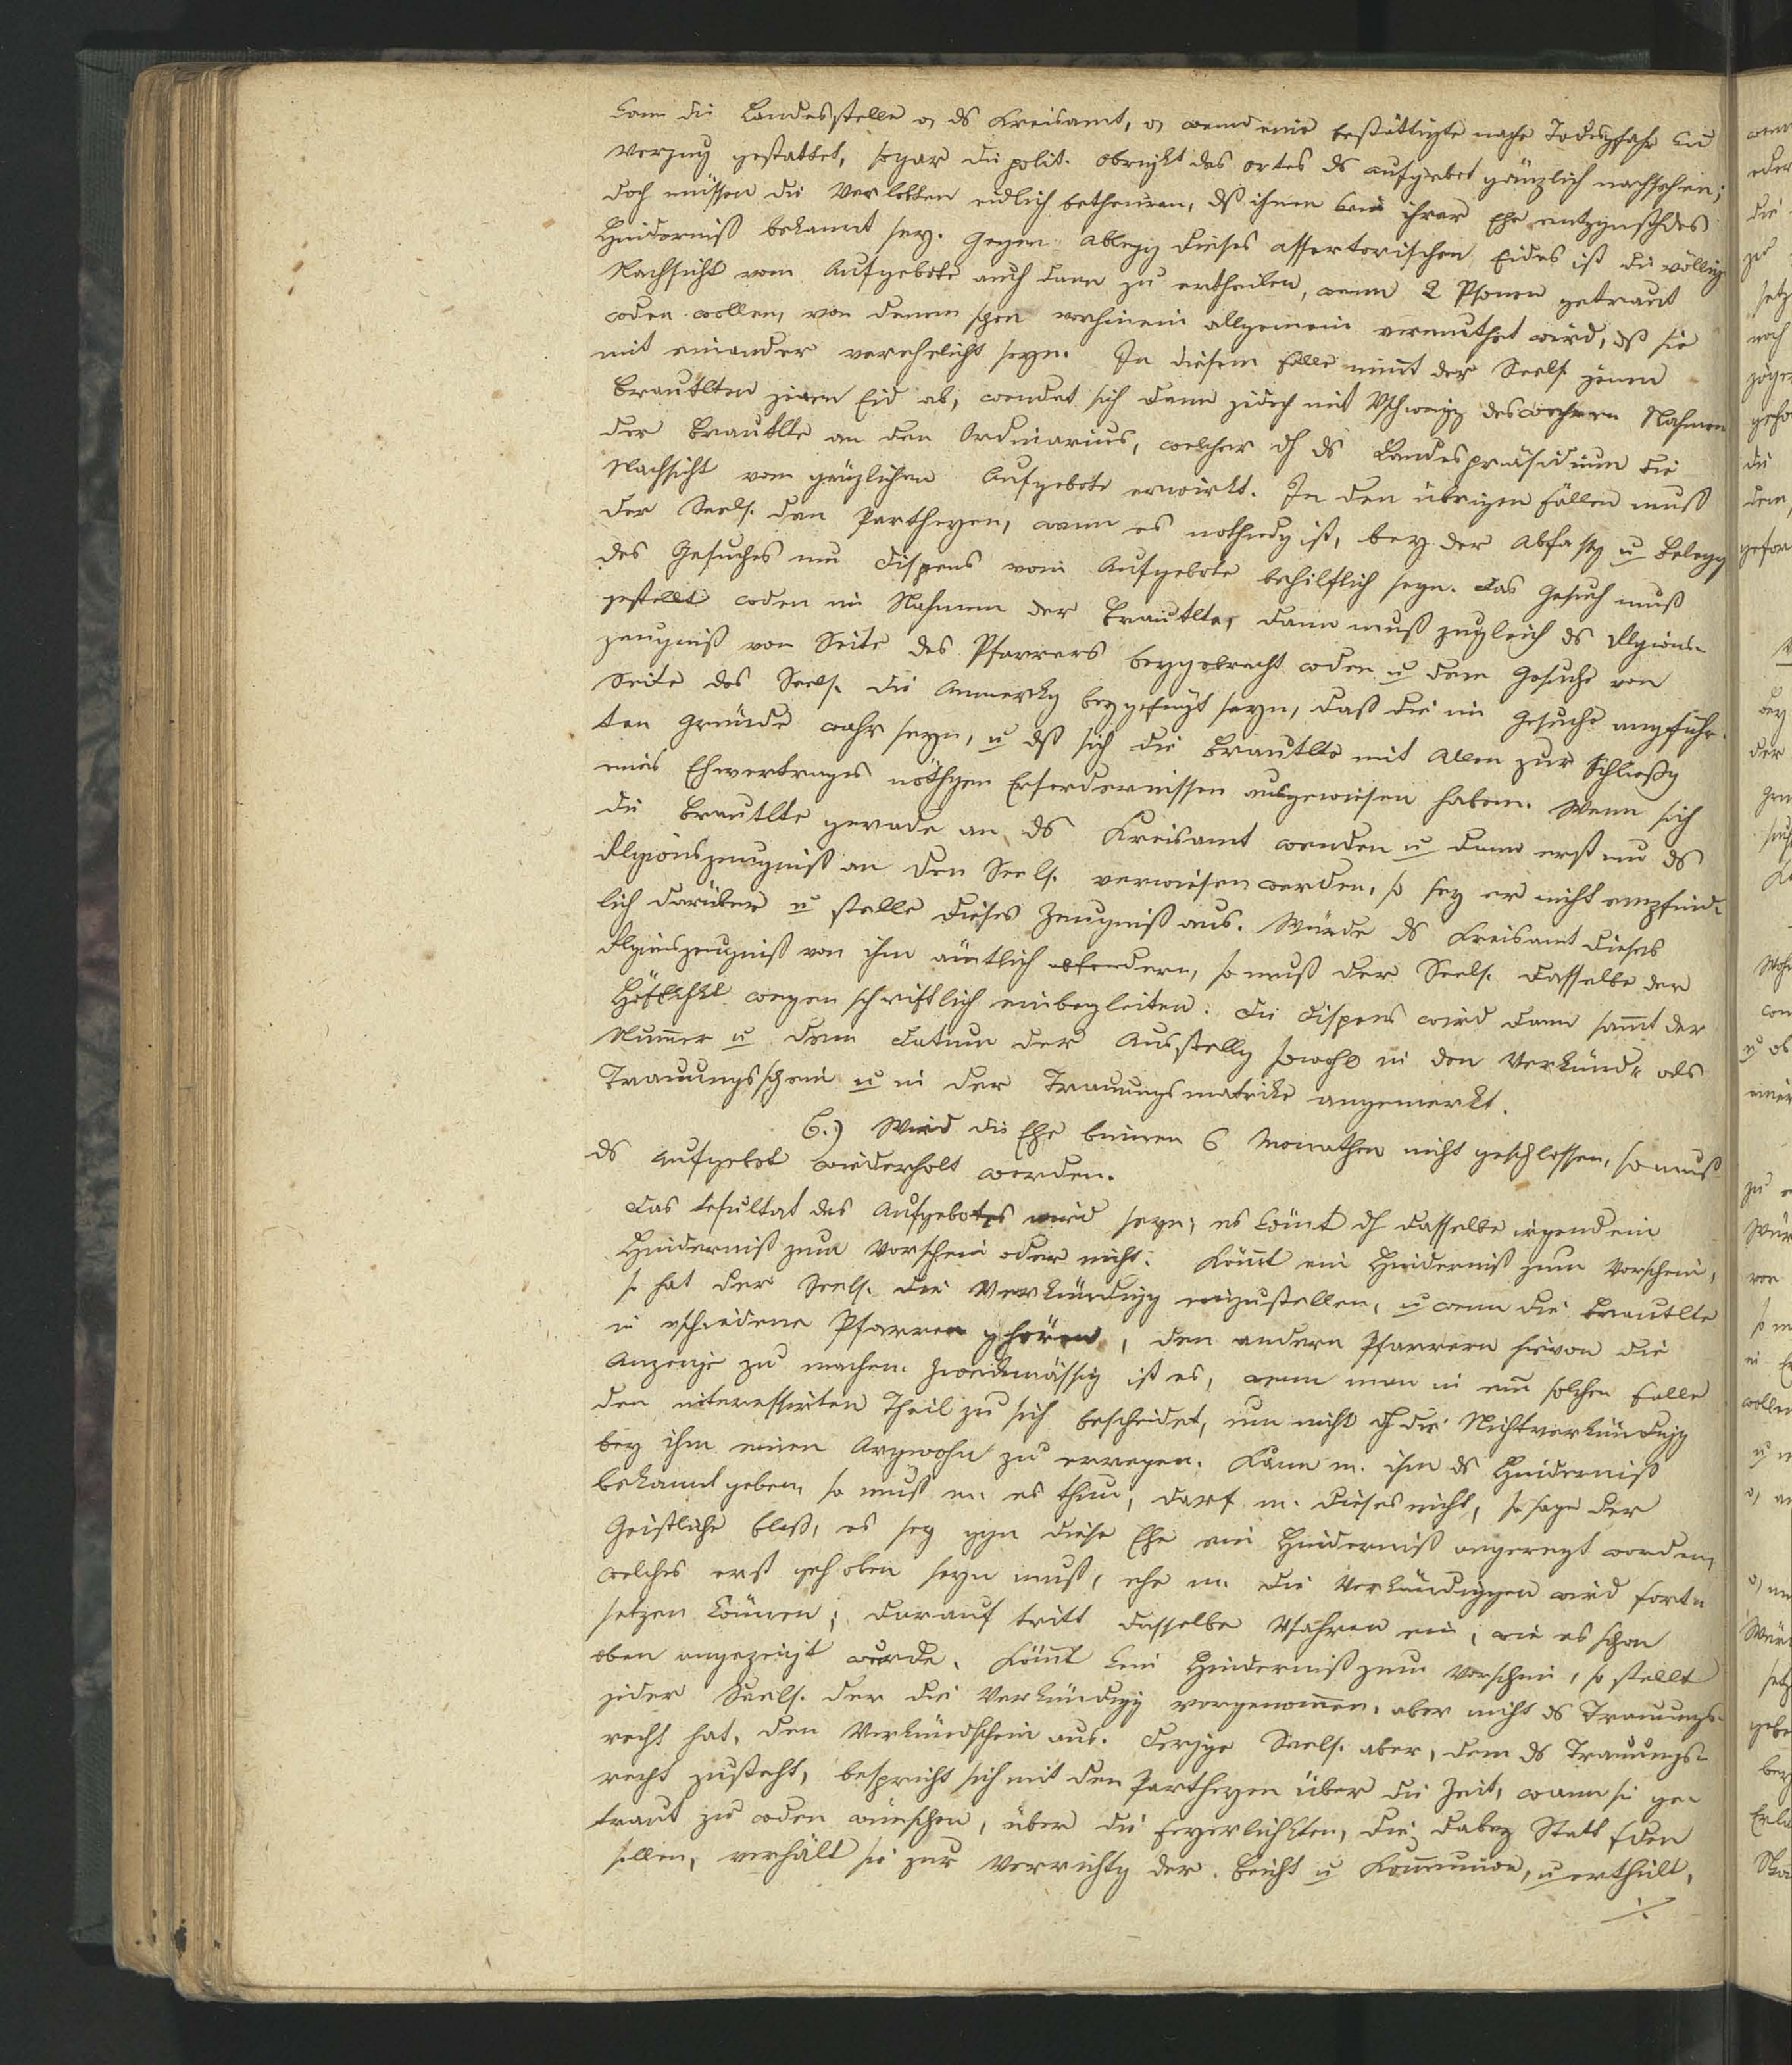 kann die Landesstelle o, ds Kreisamt, o, wenn eine bestättigte nahe Todesgfahr kein
Verzug gestattet, sogar die polit. Obrigkt des Ortes ds Aufgebot gänzlich nachsehen;
doch müssen die Verlobten eidlich betheuren, dß ihnen kein ihrer Ehe entggnsthdes
Hinderniß bekannt sey. Gegen Ablegg dieses assertorischen Eides ist die völlige
Nachsicht vom Aufgebote auch dann zu ertheilen, wenn 2 Psonen getraut
wden wollen, von denen schon vorhinein allgemein vermuthet wird, dß sie
mit einander verehelicht seyn. In diesem Falle nimt der Seels. jenen
Brautlten jenen Eid ab, wendet sich dann jedoch mit Vschweigg des wahren Nahmen
der Brautlte an den Ordinarius, welcher dh ds Landespräsidium die
Nachsicht vom gänzlichen Aufgebote erwirkt. In den übrigen Fällen muß
der Seels. den Partheyen, wenn es nothwdg ist, bey der Abfassg u Belegg
des Gesuches um Dispens vom Aufgebote behilflich seyn. Das Gesuch muß
gestellt wden im Nahmen der Brautlte, dann muß zugleich ds Rlgions-
zeugniß von Seite des Pfarrers beygebracht wden u dem Gesuche von
Seite des Seels. die Anmerkg beygefügt seyn, daß die im Gesuche angeführ-
ten Gründe wahr seyn, u dß sich die Brautlte mit Allen zur Schließg
eines Ehvertrages nöthgen Erfordernissen ausgewiesen haben. Wenn sich
die Brautlte gerade an ds Kreisamt wenden u dann erst um ds
Rlgionszeugniß an den Seels. verwiesen werden, so sey er nicht empfind-
lich darüber u stelle dieses Zeugniß aus. Würde ds Kreisamt dieses
Rlgionszeugniß von ihm ämtlich abfordern, so muß der Seels. dasselbe der
Höflichkt wegen schriftlich einbegleiten. Die Dispens wird dann sammt der
Nummer u dem Datum der Ausstellg sowohl in den Verkünd- als
Trauungsschein u in der Trauungsmatrike angemerkt.
6.) Wird die Ehe binnen 6 Monathen nicht geschlossen, so muß
ds Aufgebot wiederholt werden.
Das Resultat des Aufgebotes wird seyn; es kömt dh dasselbe irgend ein
Hinderniß zum Vorschein oder nicht. Kömt ein Hinderniß zum Vorschein,
so hat der Seels. die Verkündigg einzustellen, u wenn die Brautlte
in vschiedene Pfarren ghören, den andern Pfarrern hievon die
Anzeige zu machen. Zweckmässig ist es, wenn man in einem solchen Falle
den interessirten Theil zu sich bescheidet, um nicht dh die Nichtverkündigg
bey ihm einen Argwohn zu erregen. Kann m. ihm ds Hinderniß
bekannt geben, so muß m. es thun, darf m. dieses nicht, so sage der
Geistliche bloß, es sey ggn diese Ehe ein Hinderniß angeregt worden,
welches erst gehoben seyn muß, ehe m. die Verkündiggen wird fort-
setzen können; darauf tritt dasselbe Vfahren ein, wie es schon
oben angezeigt wurde. Kömt kein Hinderniß zum Vorschein, so stellt
jeder Seels. der die Verkündigg vorgenommen, aber nicht ds Trauungs-
recht hat, den Verkündschein aus. Derjge Seels. aber, dem ds Trauungs-
recht zusteht, bespricht sich mit den Partheyen über die Zeit, wann sie ge-
traut zu wden wünschen, über die Feyerlichkten, die dabey Statt fden
sollen, verhält sie zur Verrichtg der Beicht u Kommunion, u ertheilt,
./.